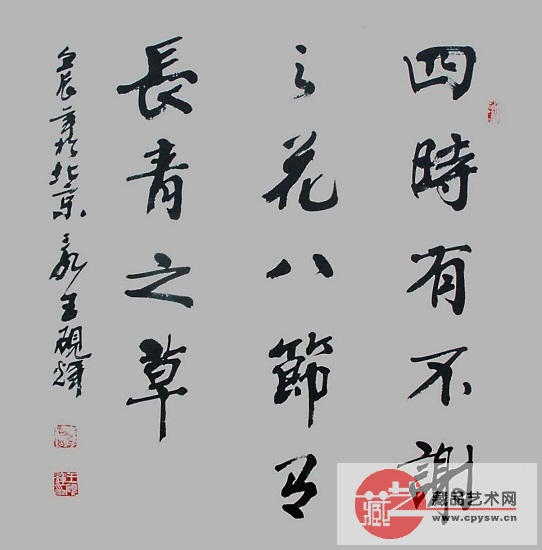 四時有不謝
之花八節有
長青之草
壬辰年於北京王硯輝
藏
藏品艺术网
www.cpysw.cn